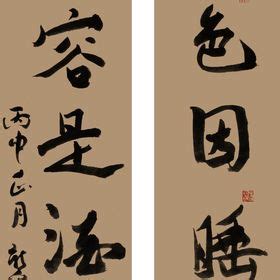 色因睡
容是酒
丙申正月